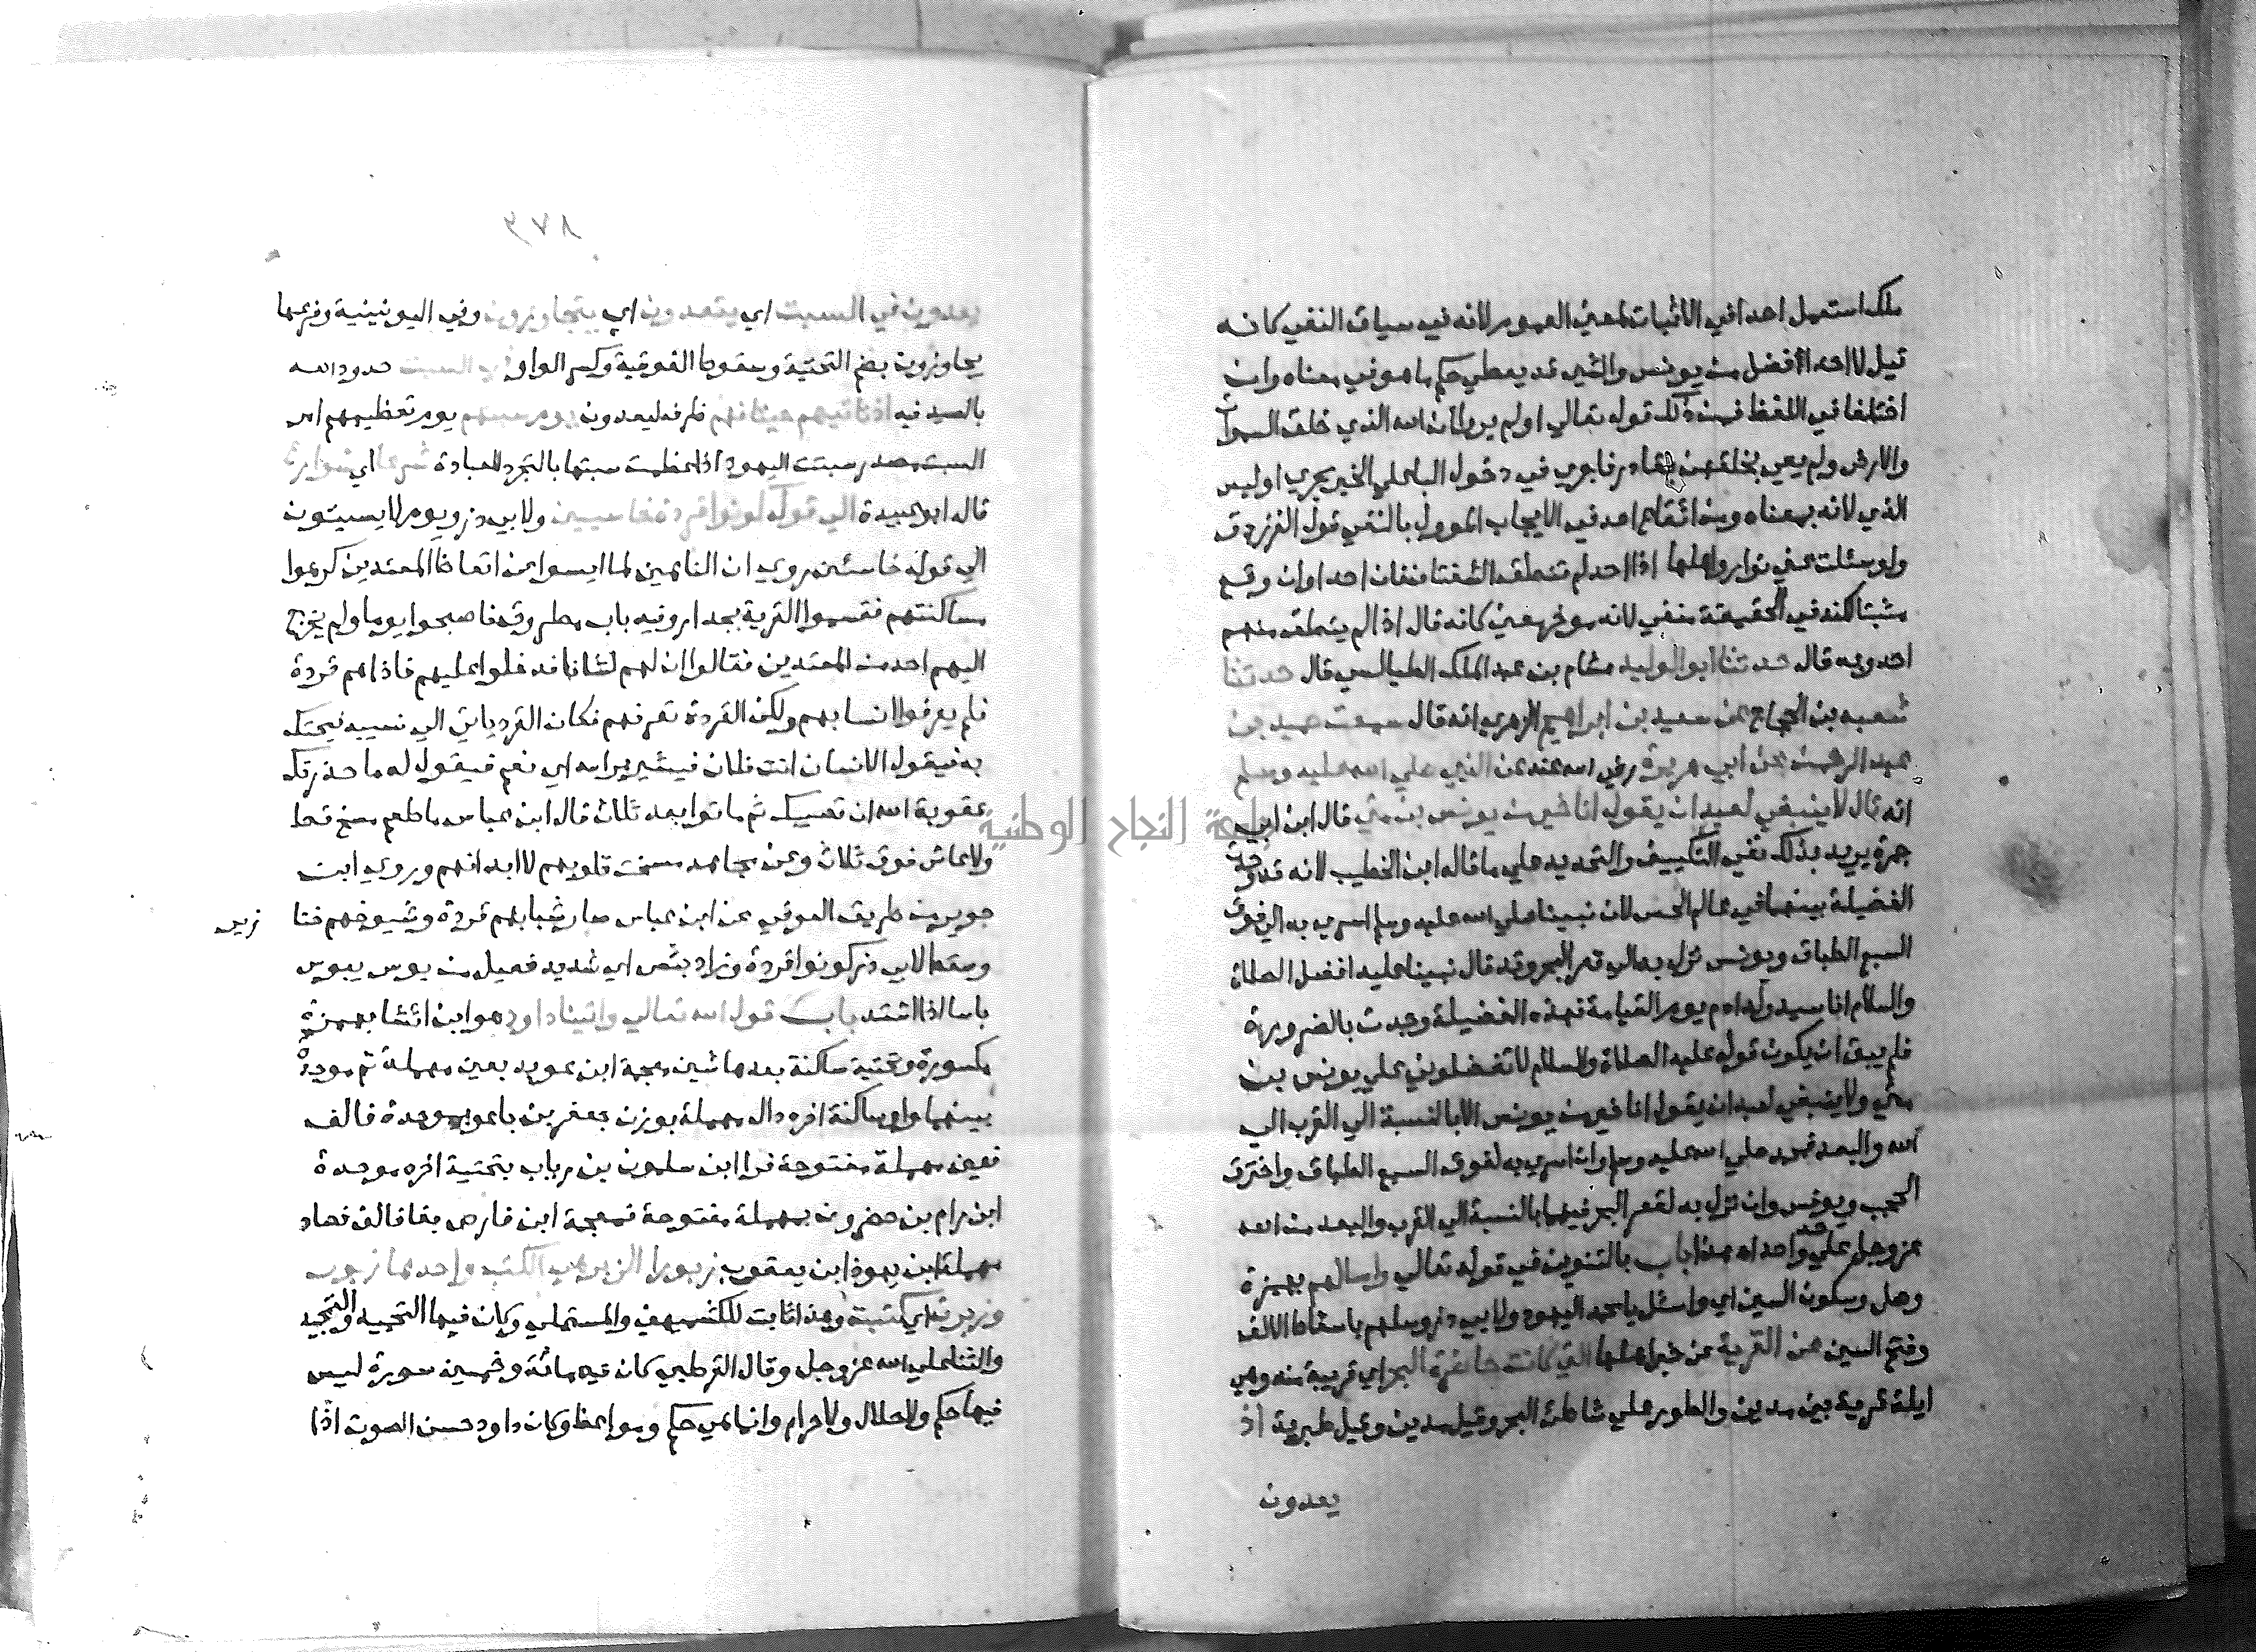 ملك استعمل احدا في الاثبات لمعني العموم لانه في سياق النفي كانه
قيل لا احد افضل من يونس والشي قد يعطي حكم ما هو في معناه وان
اختلفا في اللفظ فمن ذلك قوله تعالي اولم يروا ان الله الذي خلق السموات
والارض ولم يعي بخلقهن بقادر فاجري في دخول البا علي الخبر مجري اوليس
الذي لانه بمعناه ومن ايقاع احد في الايجاب الموول بالنفي قول الفرزدق
ولو سئلت عني نوار واهلها اذا احد لم تنطق الشفتان فان احدا وان وقع
مثبتا لكنه في الحقيقة منفي لانه موخر معني كانه قال اذا لم ينطق منهم
احد وبه قال حدثنا ابو الوليد هشام بن عبد الملك الطيالسي قال حدثنا
شعبه بن الحجاج عن سعيد بن ابراهيم الزهري انه قال سمعت حميد بن
عبد الرحمن عن ابي هريرة رضي الله عنه عن النبي صلي الله عليه وسلم
انه قال لا ينبغي لعبد ان يقول انا خير من يونس بن متي قال ابن ابي
جمرة يريد بذلك نفي التكييف والتحديد علي ما قاله ابن الخطيب لانه قد وجدت
الفضيلة بينهما في عالم الحس لان نبينا صلي الله عليه وسلم اسري به الي فوق
السبع الطباق ويونس نزل به الي قعر البحر وقد قال نبينا عليه افضل الصلاة
والسلام انا سيد ولد ادم يوم القيامة فهذه الفضيلة وجدت بالضرورة
فلم يبق ان يكون قوله عليه الصلاة والسلام لا تفضلوني علي يونس بن
متي ولا ينبغي لعبد ان يقول انا خير من يونس الا بالنسبة الي القرب الي
الله والبعد فمحمد صلي الله عليه وسلم وان اسري به لفوق السبع الطباق واخترق
الحجب ويونس وان نزل به لقعر البحر فيهما بالنسبة الي القرب والبعد من الله
عز وجل علي حد واحد اه هذا باب بالتنوين في قوله تعالي واسالهم بهمزة
وصل وسكون السين اي واسئل يا محمد اليهود ولابي ذر وسلهم باسقاط الالف
وفتح السين عن القرية عن خبر اهلها التي كانت حاضرة البحر اي قريبة منه وهي
ايلة قرية بين مدين والطور علي شاطئ البحر وقيل مدين وقيل طبرية اذ
يعدون
٣٧٨
يعدون في السبت اي يتعدون اي يتجاوزون وفي اليونينية وفرعها
يجاوزون بضم التحتية وسقوط الفوقية وكسر الواو في السبت حدود الله
بالصيد فيه اذ تاتيهم حيتانهم ظرف ليعدون يوم سبتهم يوم تعظيمهم امر
السبت مصدر سبتت اليهود اذا عظمت سبتها بالتجرد للعبادة شرعا اي شوارع
قاله ابو عبيدة الي قوله كونوا قردة خاسيين ولابي ذر ويوم لا يسبتون
الي قوله خاسئين روي ان الناهين لما ايسوا من اتعاظ المعتدين كرهوا
مساكنتهم فقسموا القرية بجدار وفيه باب مطروق فاصبحوا يوما ولم يخرج
اليهم احد من المعتدين فقالوا ان لهم لشانا فدخلوا عليهم فاذا هم قردة
فلم يعرفوا انسابهم ولكن القردة تعرفهم فكان القرد ياتي الي نسيبه فيحتك
به فيقول الانسان انت فلان فيشير براسه اي نعم فيقول له ما حذرتك
عقوبة الله ان تصيبك ثم ماتوا بعد ثلاث قال ابن عباس ما طعم مسخ قط
ولا عاش فوق ثلاث وعن مجاهد مسخت قلوبهم لا ابدانهم وروي ابن
جرير من طريق العوفي عن ابن عباس صار شبابهم قردة وشيوخهم خنا
زير
وسقط لابي ذر كونوا قردة وزاد بئس اي شديد فعيل من بوس يبوس
باسا اذا اشتد باب قول الله تعالي واتينا داود هو ابن ائشا بهمزة
مكسورة وتحتية ساكنة بعدها شين معجمة ابن عوبد بعين مهملة ثم موحدة
بينهما واو ساكنة اخره دال مهملة بوزن جعفر بن باعر بموحدة فالف
فعين مهملة مفتوحة فرا ابن سلمون بن رباب بتحتية اخره موحدة
ابن رام بن حضرون بمهملة مفتوحة فمعجمة ابن فارص بفا فالف فصاد
مهملة ابن يهوذ ابن يعقوب زبورا الزبر هي الكتب واحدها زبور
وزبرت اي كتبت وهذا ثابت للكشميهني والمستملي وكان فيها التحميد والتمجيد
والثنا علي الله عز وجل وقال القرطبي كان فيه مائة وخمسين سورة ليس
فيها حكم ولا حلال ولا حرام وانما هي حكم ومواعظ وكان داود حسن الصوت اذا
جامعة النجاح الوطنية